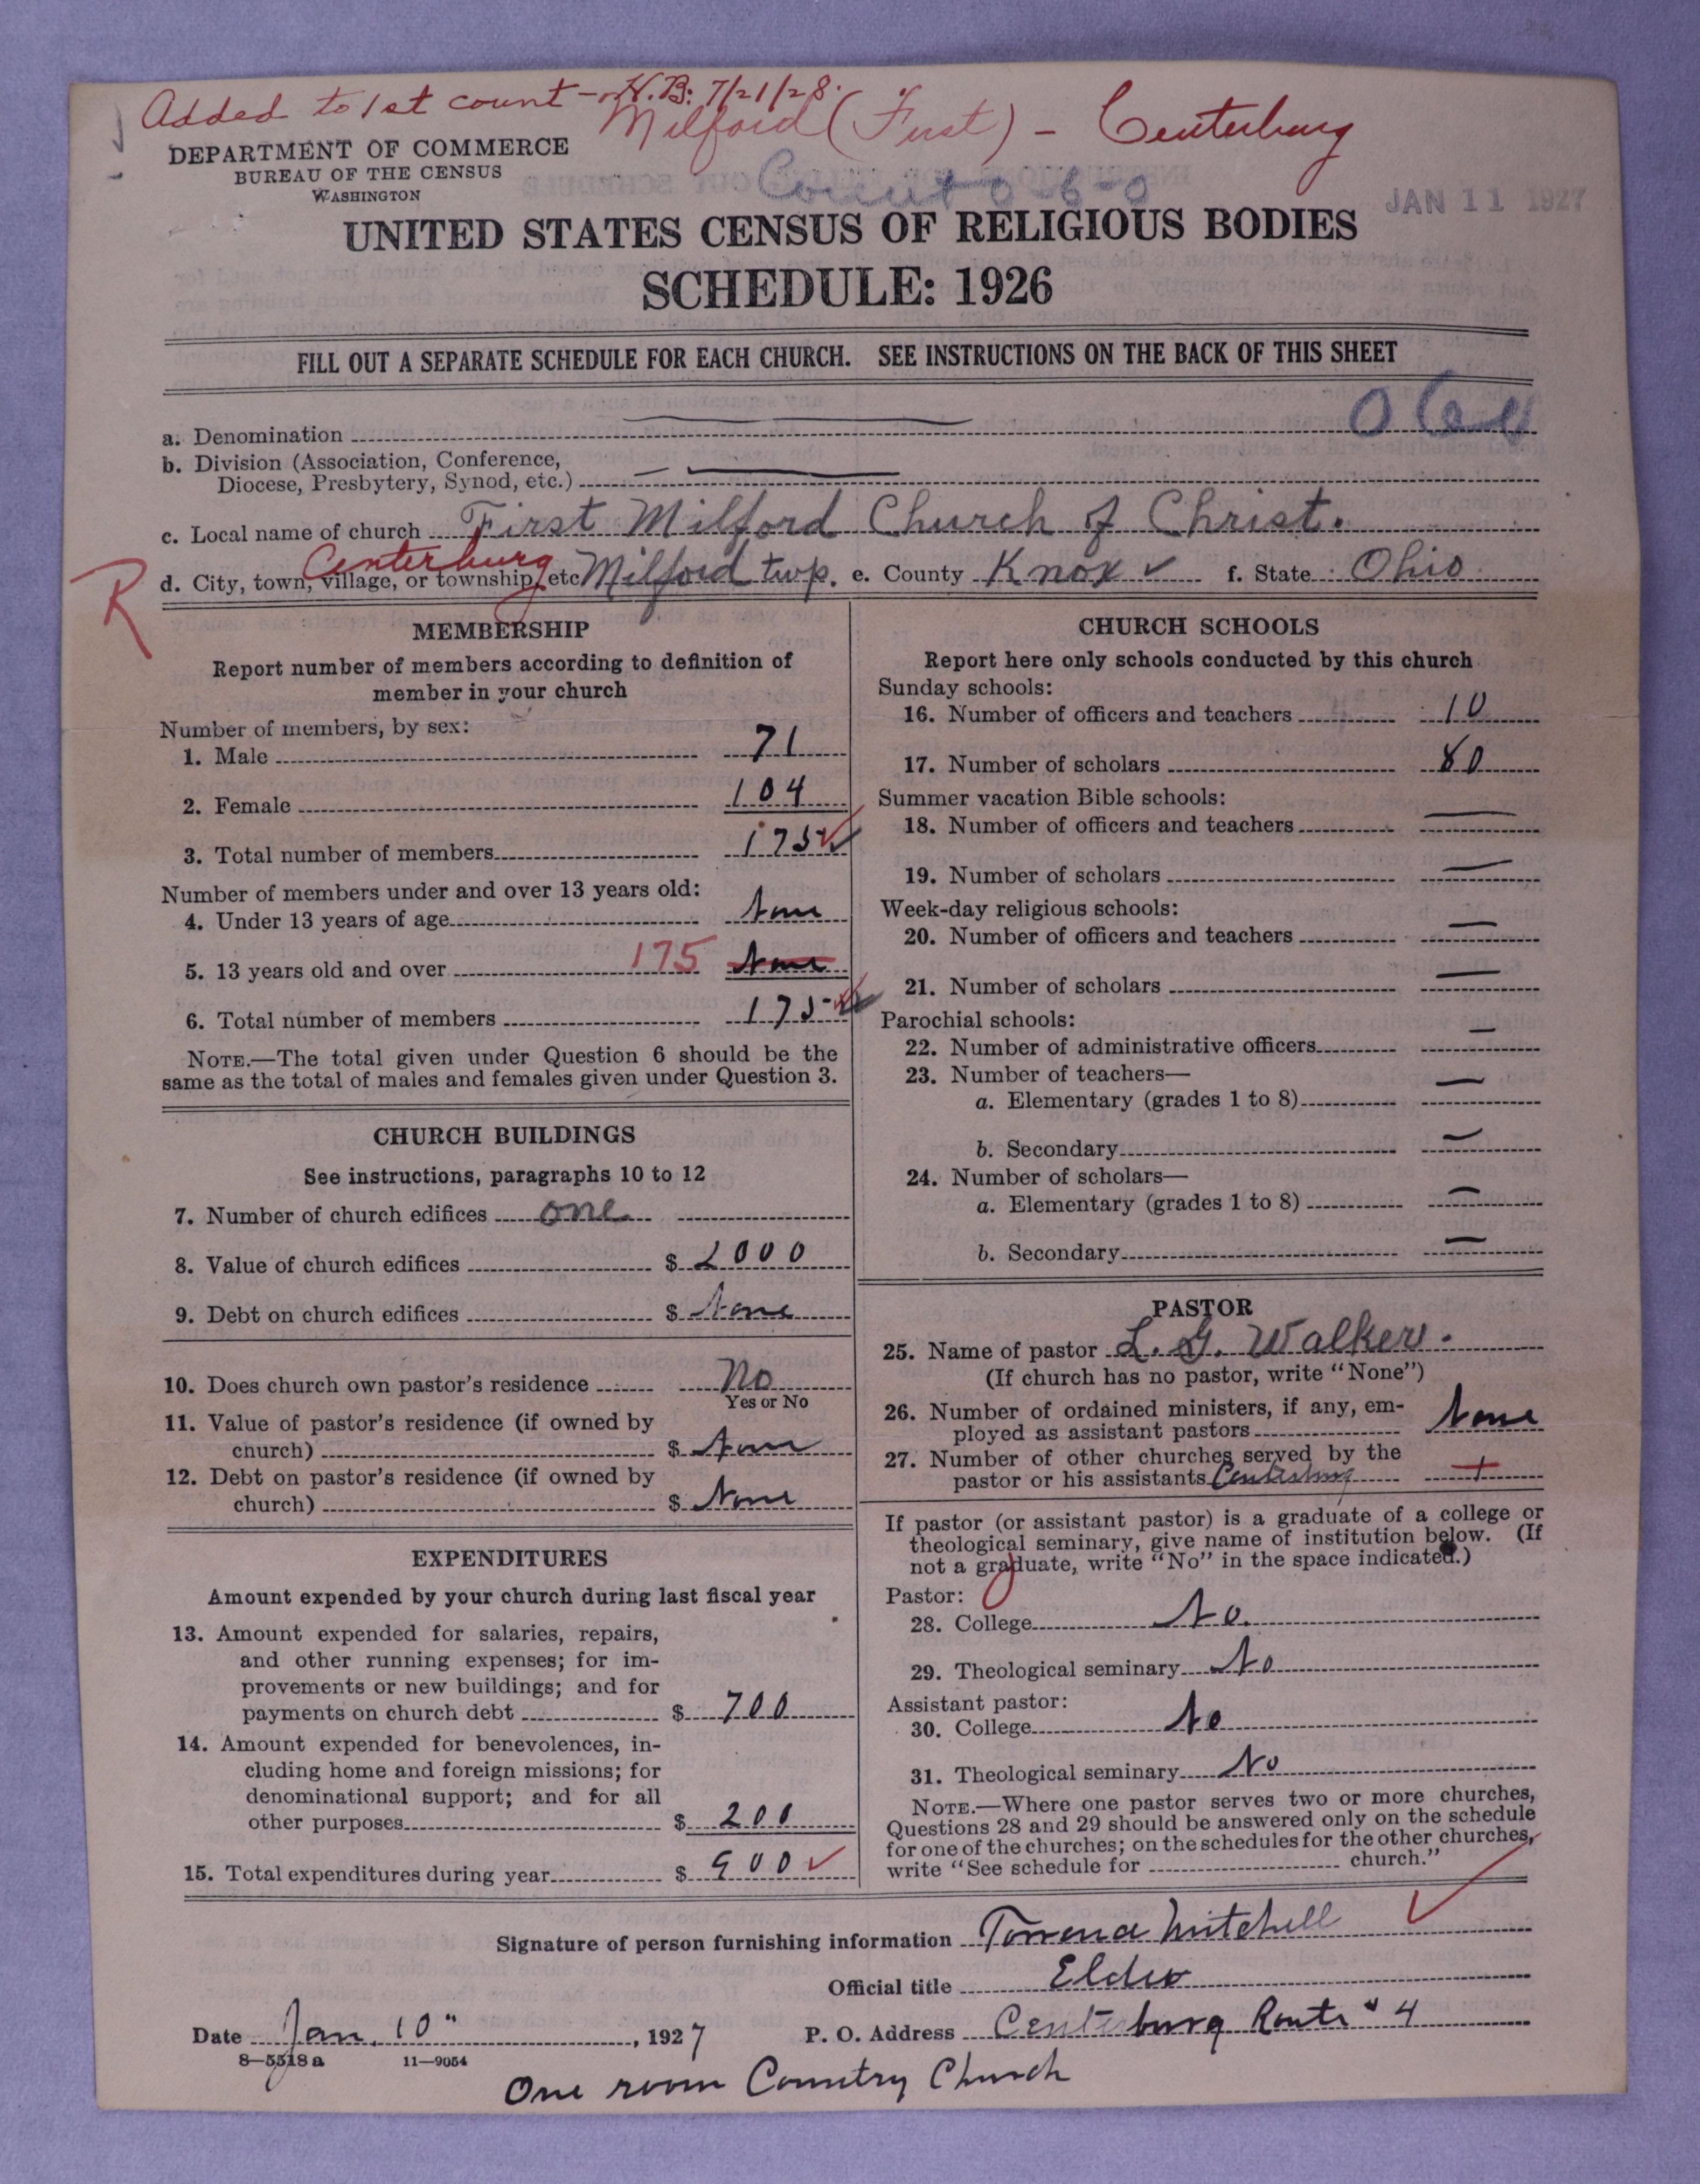 Added to 1st count - H.B. 7/21/28.
Milford (First) - Centerburg
DEPARTMENT OF COMMERCE
BUREAU OF THE CENSUS
WASHINGTON
JAN 11 1927
UNITED STATES CENSUS OF RELIGIOUS BODIES
SCHEDULE: 1926
FILL OUT A SEPARATE SCHEDULE FOR EACH CHURCH. SEE INSTRUCTIONS ON THE BACK OF THIS SHEET
a. Denomination
b. Division (Association, Conference,
Diocese, Presbytery, Synod, etc.)
c. Local name of church First Milford Church of Christ.
Centerburg
d. City, town, village, or township, etc Milford twp. e. County Knox ✓ f. State Ohio
R
MEMBERSHIP
Report number of members according to definition of
member in your church
Number of members, by sex:
1. Male 71
2. Female 104
3. Total number of members 175 ✓
Number of members under and over 13 years old:
4. Under 13 years of age None
5. 13 years old and over 175 None
6. Total number of members 175
NOTE.—The total given under Question 6 should be the
same as the total of males and females given under Question 3.
CHURCH BUILDINGS
See instructions, paragraphs 10 to 12
7. Number of church edifices one
8. Value of church edifices $ 2000
9. Debt on church edifices $ None
10. Does church own pastor's residence No
Yes or No
11. Value of pastor's residence (if owned by
church) $ None
12. Debt on pastor's residence (if owned by
church) $ None
EXPENDITURES
Amount expended by your church during last fiscal year
13. Amount expended for salaries, repairs,
and other running expenses; for im-
provements or new buildings; and for
payments on church debt $ 700
14. Amount expended for benevolences, in-
cluding home and foreign missions; for
denominational support; and for all
other purposes $ 200
15. Total expenditures during year $ 900 ✓
CHURCH SCHOOLS
Report here only schools conducted by this church
Sunday schools:
16. Number of officers and teachers 10
17. Number of scholars 80
Summer vacation Bible schools:
18. Number of officers and teachers —
19. Number of scholars —
Week-day religious schools:
20. Number of officers and teachers —
21. Number of scholars —
Parochial schools:
22. Number of administrative officers —
23. Number of teachers—
a. Elementary (grades 1 to 8) —
b. Secondary —
24. Number of scholars—
a. Elementary (grades 1 to 8) —
b. Secondary —
PASTOR
25. Name of pastor L. G. Walker.
(If church has no pastor, write "None")
26. Number of ordained ministers, if any, em-
ployed as assistant pastors None
27. Number of other churches served by the
pastor or his assistants Centerburg
If pastor (or assistant pastor) is a graduate of a college or
theological seminary, give name of institution below. (If
not a graduate, write "No" in the space indicated.)
Pastor:
28. College No.
29. Theological seminary No
Assistant pastor:
30. College No
31. Theological seminary No
NOTE.—Where one pastor serves two or more churches,
Questions 28 and 29 should be answered only on the schedule
for one of the churches; on the schedules for the other churches,
write "See schedule for church."
Signature of person furnishing information Mitchell ✓
Official title Elder
Date Jan. 10", 1927 P. O. Address Centerburg Route #4
8—5518 a 11—9054
One room Country Church